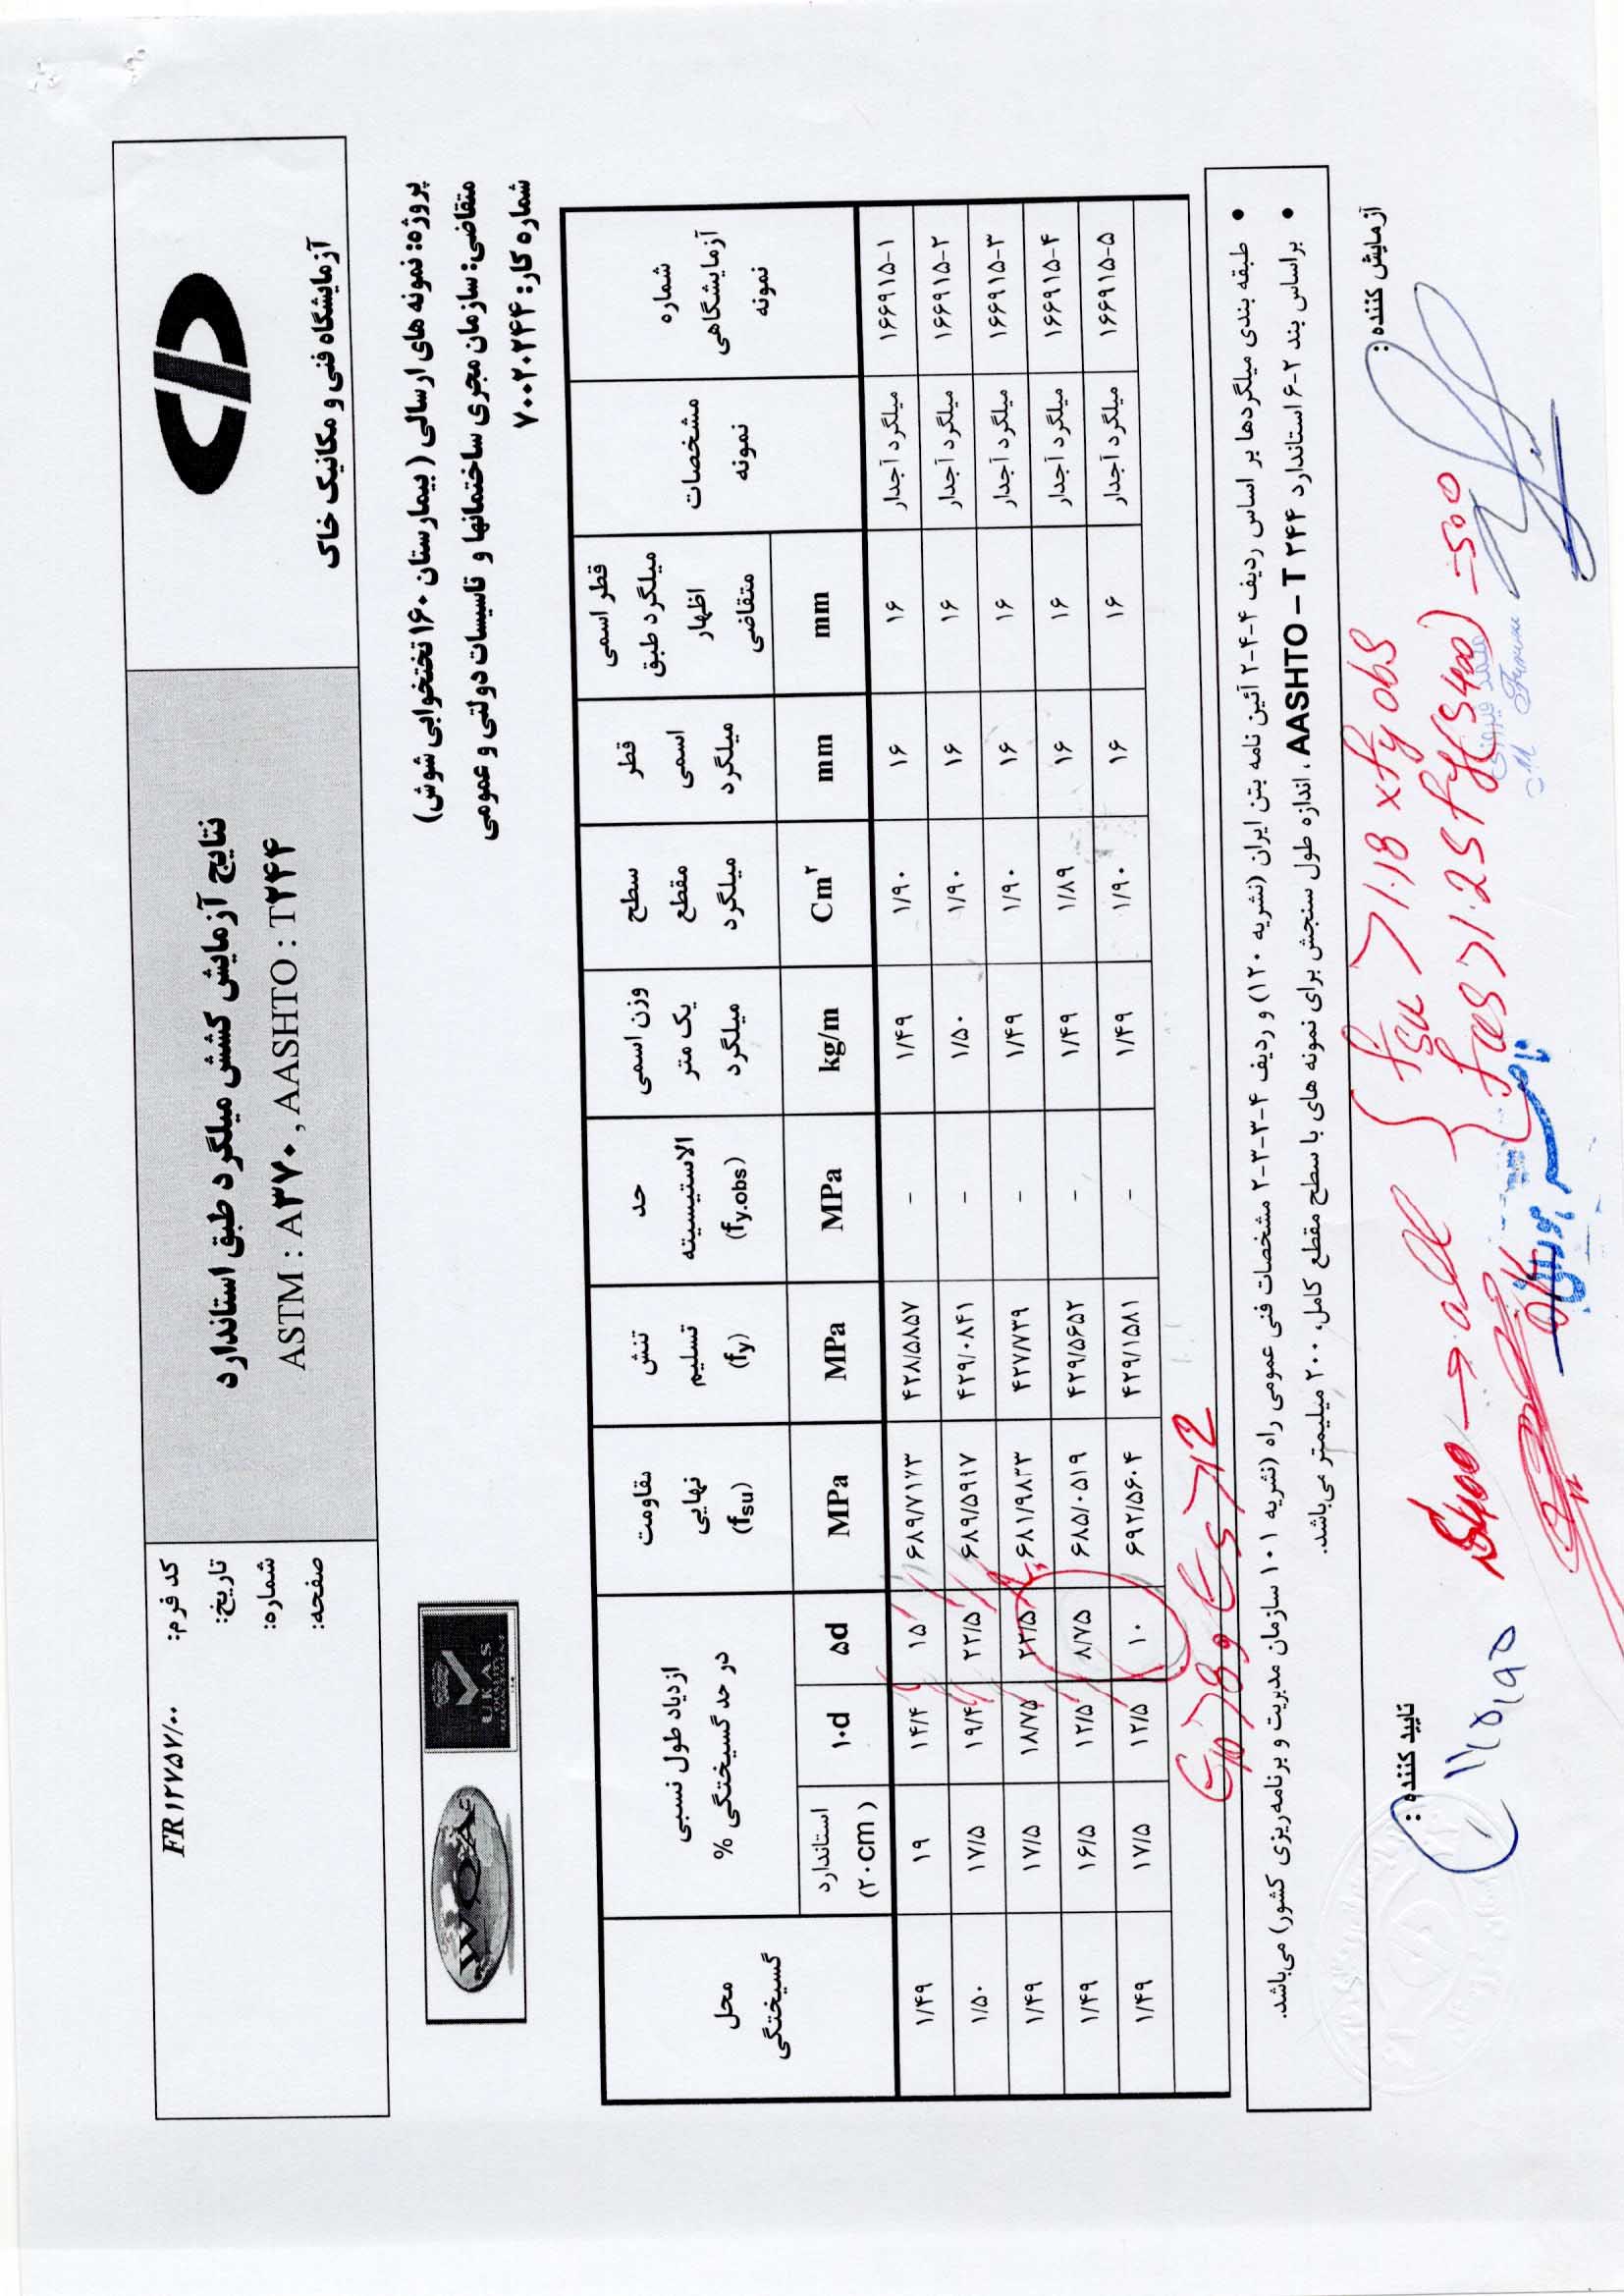 آزمایشگاه فنی و مکانیک خاک
نتایج آزمایش کشش میلگرد طبق استاندارد
ASTM : A۳۷۰ , AASHTO : T۲۴۴
کد فرم: FR۱۲۷۵۷/۰۰
تاریخ:
شماره:
صفحه:
پروژه: نمونه های ارسالی ( بیمارستان ۱۶۰ تختخوابی شوش)
متقاضی: سازمان مجری ساختمانها و تاسیسات دولتی و عمومی
شماره کار: ۷۰۰۲۰۲۴۴
WQA
UKAS
شماره آزمایشگاهی نمونه | مشخصات نمونه | قطر اسمی میلگرد طبق اظهار متقاضی | قطر اسمی میلگرد | سطح مقطع میلگرد | وزن اسمی یک متر میلگرد | حد الاستیسیته (fy.obs) | تنش تسلیم (fy) | مقاومت نهایی (fsu) | ازدیاد طول نسبی در حد گسیختگی % | محل گسیختگی
mm | mm | Cm۲ | kg/m | MPa | MPa | MPa | ۵d | ۱۰d | استاندارد (۲۰cm )
۱۶۶۹۱۵-۱ | میلگرد آجدار | ۱۶ | ۱۶ | ۱/۹۰ | ۱/۴۹ | - | ۴۲۸/۵۸۵۷ | ۶۸۹/۷۱۷۳ | ۱۵ | ۱۴/۴ | ۱۹ | ۱/۴۹
۱۶۶۹۱۵-۲ | میلگرد آجدار | ۱۶ | ۱۶ | ۱/۹۰ | ۱/۵۰ | - | ۴۲۹/۰۸۴۱ | ۶۸۹/۵۹۱۷ | ۲۲/۵ | ۱۹/۴ | ۱۷/۵ | ۱/۵۰
۱۶۶۹۱۵-۳ | میلگرد آجدار | ۱۶ | ۱۶ | ۱/۹۰ | ۱/۴۹ | - | ۴۲۷/۷۳۹ | ۶۸۱/۹۸۳۳ | ۲۳/۵ | ۱۸/۷۵ | ۱۷/۵ | ۱/۴۹
۱۶۶۹۱۵-۴ | میلگرد آجدار | ۱۶ | ۱۶ | ۱/۸۹ | ۱/۴۹ | - | ۴۲۹/۵۶۵۲ | ۶۸۵/۰۵۱۹ | ۸/۷۵ | ۱۲/۵ | ۱۶/۵ | ۱/۴۹
۱۶۶۹۱۵-۵ | میلگرد آجدار | ۱۶ | ۱۶ | ۱/۹۰ | ۱/۴۹ | - | ۴۲۹/۱۵۸۱ | ۶۹۲/۵۶۰۴ | ۱۰ | ۱۲/۵ | ۱۷/۵ | ۱/۴۹
• طبقه بندی میلگردها بر اساس ردیف ۴-۴-۲ آئین نامه بتن ایران (نشریه ۱۲۰) و ردیف ۴-۳-۳-۲ مشخصات فنی عمومی راه (نشریه ۱۰۱ سازمان مدیریت و برنامه‌ریزی کشور) می‌باشد.
• براساس بند ۲-۶ استاندارد AASHTO – T ۲۴۴ ، اندازه طول سنجش برای نمونه های با سطح مقطع کامل، ۲۰۰ میلیمتر می‌باشد.
آزمایش کننده :
تایید کننده :
S400 → all
fsu > 1.18 x fy obs
1.25 fy (S400) = 500